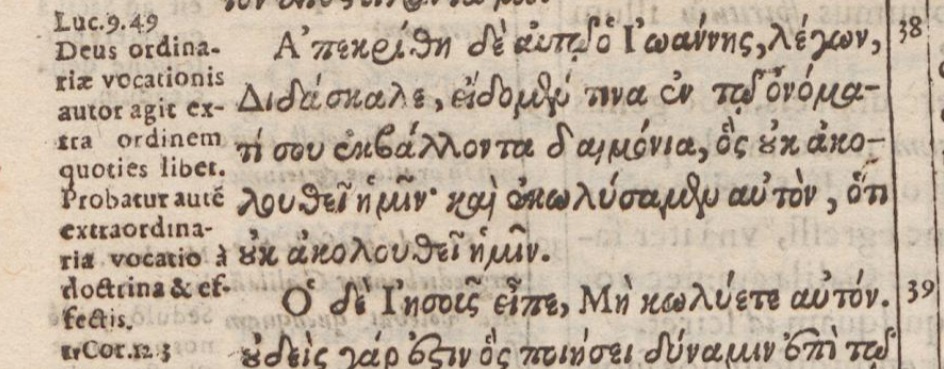 Luc. 9. 49
Deus ordina-
riæ vocationis
autor agit ex-
tra ordinem
quoties libet.
Probatur autē
extraordina-
ria vocatio à
doctrina & ef-
fectis.
1 Cor. 12. 3
Ἀπεκρίθη δὲ αὐτῷ ὁ Ἰωάννης, λέγων, 38
Διδάσκαλε, εἴδομέν τινα ἐν τῷ ὀνόμα-
τί σου ἐκβάλλοντα δαιμόνια, ὃς οὐκ ἀκο-
λουθεῖ ἡμῖν· καὶ ἐκωλύσαμεν αὐτὸν, ὅτι
οὐκ ἀκολουθεῖ ἡμῖν.
Ὁ δὲ Ἰησοῦς εἶπε, Μὴ κωλύετε αὐτόν. 39
οὐδεὶς γάρ ἐστιν ὃς ποιήσει δύναμιν ἐπὶ τῷ